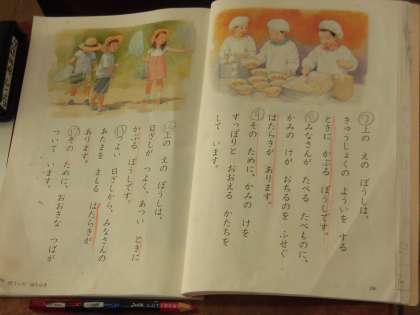 上の えの ぼうしは、
きゅうしょくの よういを する
ときに かぶる ぼうしです。
みなさんが たべる たべものに、
かみの けが おちるのを ふせぐ
はたらきが あります。
その ために、かみの けを
すっぽりと おおえる かたちを
して います。
上の えの ぼうしは、
日ざしが つよく、あつい ときに
かぶる ぼうしです。
つよい 日ざしから、みなさんの
あたまを まもる はたらきが
あります。
その ために、おおきな つばが
ついて います。